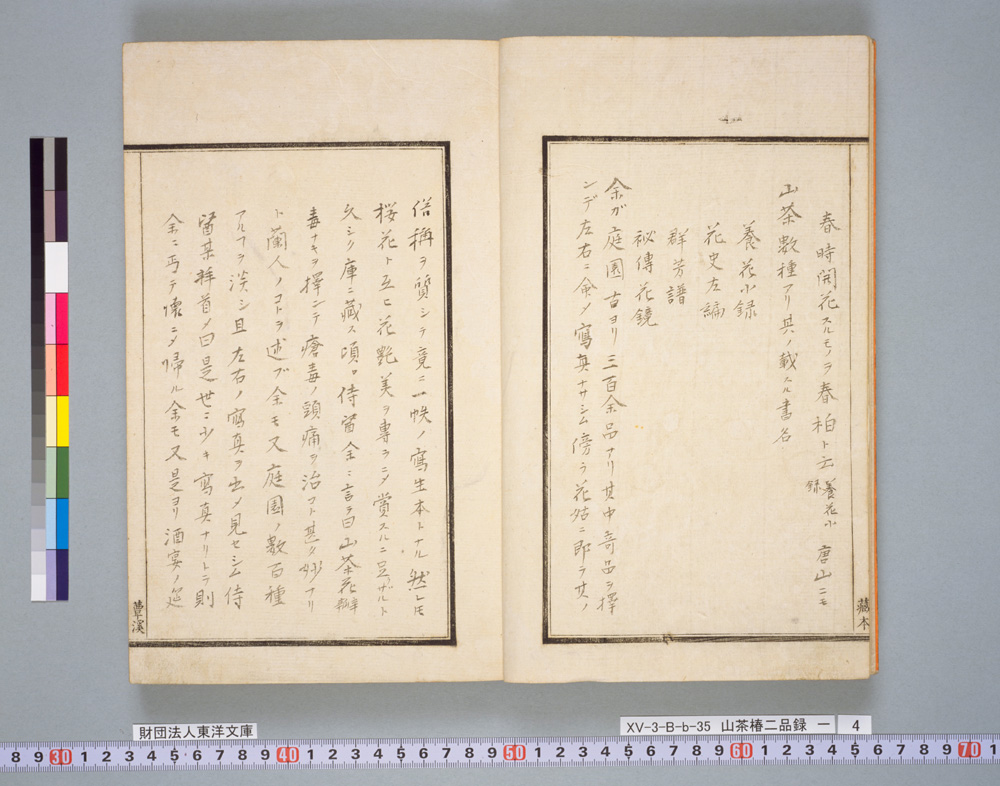 春時開花スルモノヲ春柏ト云 養花小録 唐山ニモ
山茶數種アリ其ノ載スル書名
養花小録
花史左編
群芳譜
祕傳花鏡
余ガ庭園古ヨリ三百余品アリ其中奇品ヲ擇
ンデ左右ニ命〆寫真ナサシム傍ラ花姑ニ即ラ其ノ
藏本
俗稱ヲ質シテ竟ニ一帙ノ寫生本トナル然レモ
桜花ト互ヒ花艶美ヲ專ラニ〆賞スルニ足ザルト
久シク庫ニ藏ス頃日侍醫余ニ言テ曰山茶花瓣
毒ナキヲ擇ンテ瘡毒ノ頭痛ヲ治コト甚タ妙アリ
ト蘭人ノコトヲ述ブ余モ又庭園ノ數百種
アルヿヲ談シ且左右ノ寫真ヲ出〆見セシム侍
醫某拜首〆曰是世ニ少キ寫真ナリトラ則
余ニ丐テ懐ニ〆帰ル余モ又是ヨリ酒宴ノ筵
蕈溪
財団法人東洋文庫
XV-3-B-b-35 山茶椿二品録 一 4
8 9 30 1 2 3 4 5 6 7 8 9 40 1 2 3 4 5 6 7 8 9 50 1 2 3 4 5 6 7 8 9 60 1 2 3 4 5 6 7 8 9 70 1